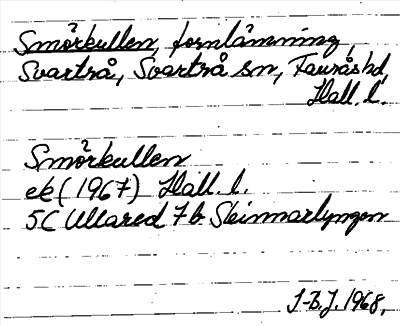 Smörkullen, fornlämning,
Svartrå, Svartrå sn, Faurås hd,
Hall. l.
Smörkullen
ek (1967) Hall. l.
5C Ullared 7b Skinnarlyngen
J-B.J. 1968.